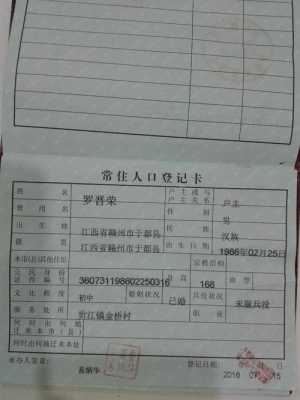 常住人口登记卡
姓名 罗晋荣 户主或与户主关系 户主
曾用名 性别 男
出生地 江西省赣州市于都县 民族 汉族
籍贯 江西省赣州市于都县 出生日期 1986年02月25日
本市(县)其他住址 宗教信仰
公民身份证件编号 360731198602250316 身高 168 血型
文化程度 初中 婚姻状况 已婚 兵役状况 未服兵役
服务处所 金桥村 职业
何时由何地迁来本市(县)
何时由何地迁来本址
承办人签章: 登记日期: